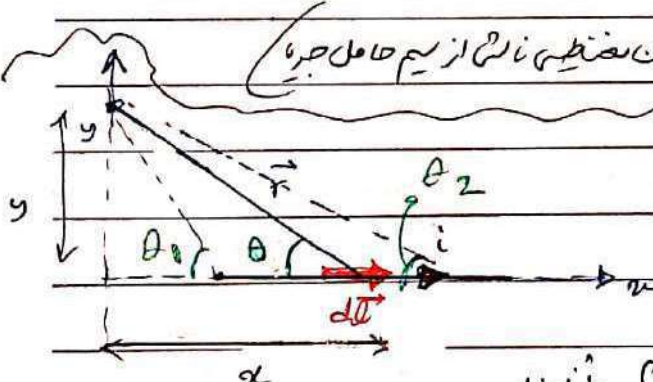 ن مغناطیسی ناشی از سیم حامل جریا
y
y
r
θ₂
θ₁
θ
i
dl
x
x